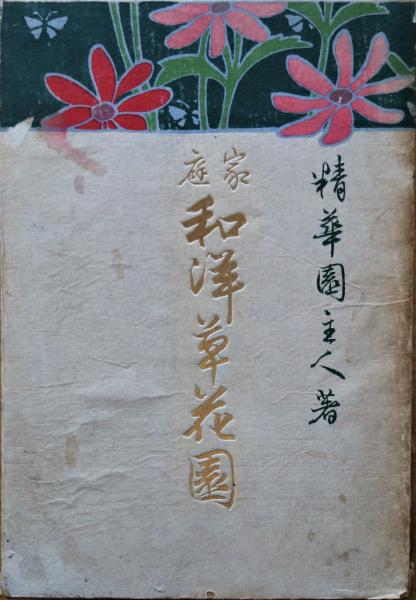 精華園主人著
家庭
和洋草花園